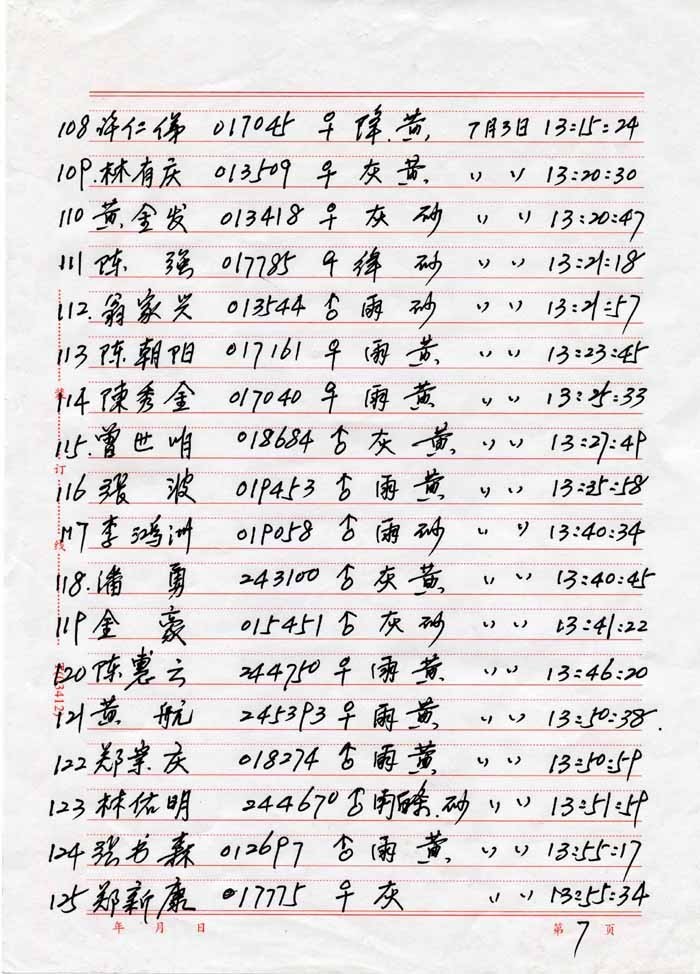 108 许仁俤 017045 ♀ 绛.黄 7月3日 13:15:24
109.林有庆 013509 ♀ 灰 黄 〃 〃 13:20:30
110 黄金发 013418 ♀ 灰 砂 〃 〃 13:20:47
111 陈 强 017785 ♀ 绛 砂 〃 〃 13:21:18
112.翁家兴 013544 ♂ 雨 砂 〃 〃 13:21:57
113 陈朝阳 017161 ♀ 雨 黄 〃 〃 13:23:45
114 陳秀金 017040 ♀ 雨 黄 〃 〃 13:25:33
115.曾世明 018684 ♂ 灰 黄 〃 〃 13:27:49
116 张 波 019453 ♂ 雨 黄 〃 〃 13:35:58
117 李鸿洲 019058 ♂ 雨 砂 〃 〃 13:40:34
118.潘 勇 243100 ♂ 灰 黄 〃 〃 13:40:45
119 金 豪 015451 ♂ 灰 砂 〃 〃 13:41:22
120 陈惠云 244750 ♀ 雨 黄 〃 〃 13:46:20
121 黄 航 245393 ♀ 雨 黄 〃 〃 13:50:38.
122 郑崇庆 018274 ♂ 雨 黄 〃 〃 13:50:59
123 林佑明 244670 ♂ 雨 .砂 〃 〃 13:51:59
124 张书森 012697 ♂ 雨 黄 〃 〃 13:55:17
125 郑新康 017775 ♀ 灰 〃 〃 13:55:34
年 月 日 第 7 页
装
订
线